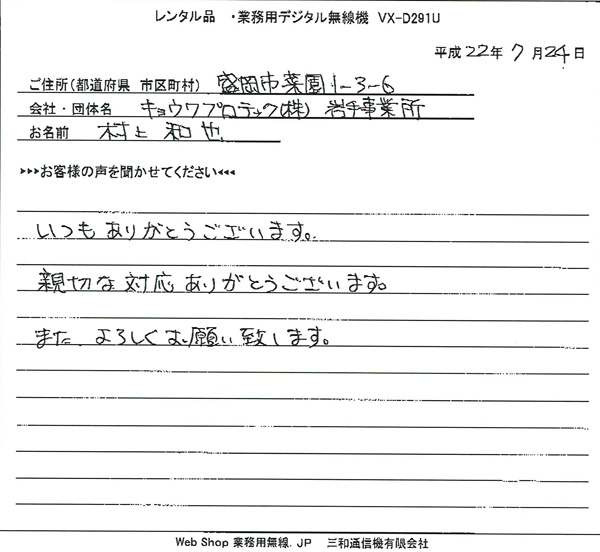 レンタル品 ・業務用デジタル無線機 VX-D291U
平成 22年 7月 24日
ご住所(都道府県 市区町村) 盛岡市菜園1-3-6
会社・団体名 キョウワプロテック(株) 岩手事業所
お名前 村上 和也
>>>お客様の声を聞かせてください<<<
いつもありがとうございます。
親切な対応ありがとうございます。
また よろしくお願い致します。
Web Shop 業務用無線.JP 三和通信機有限会社